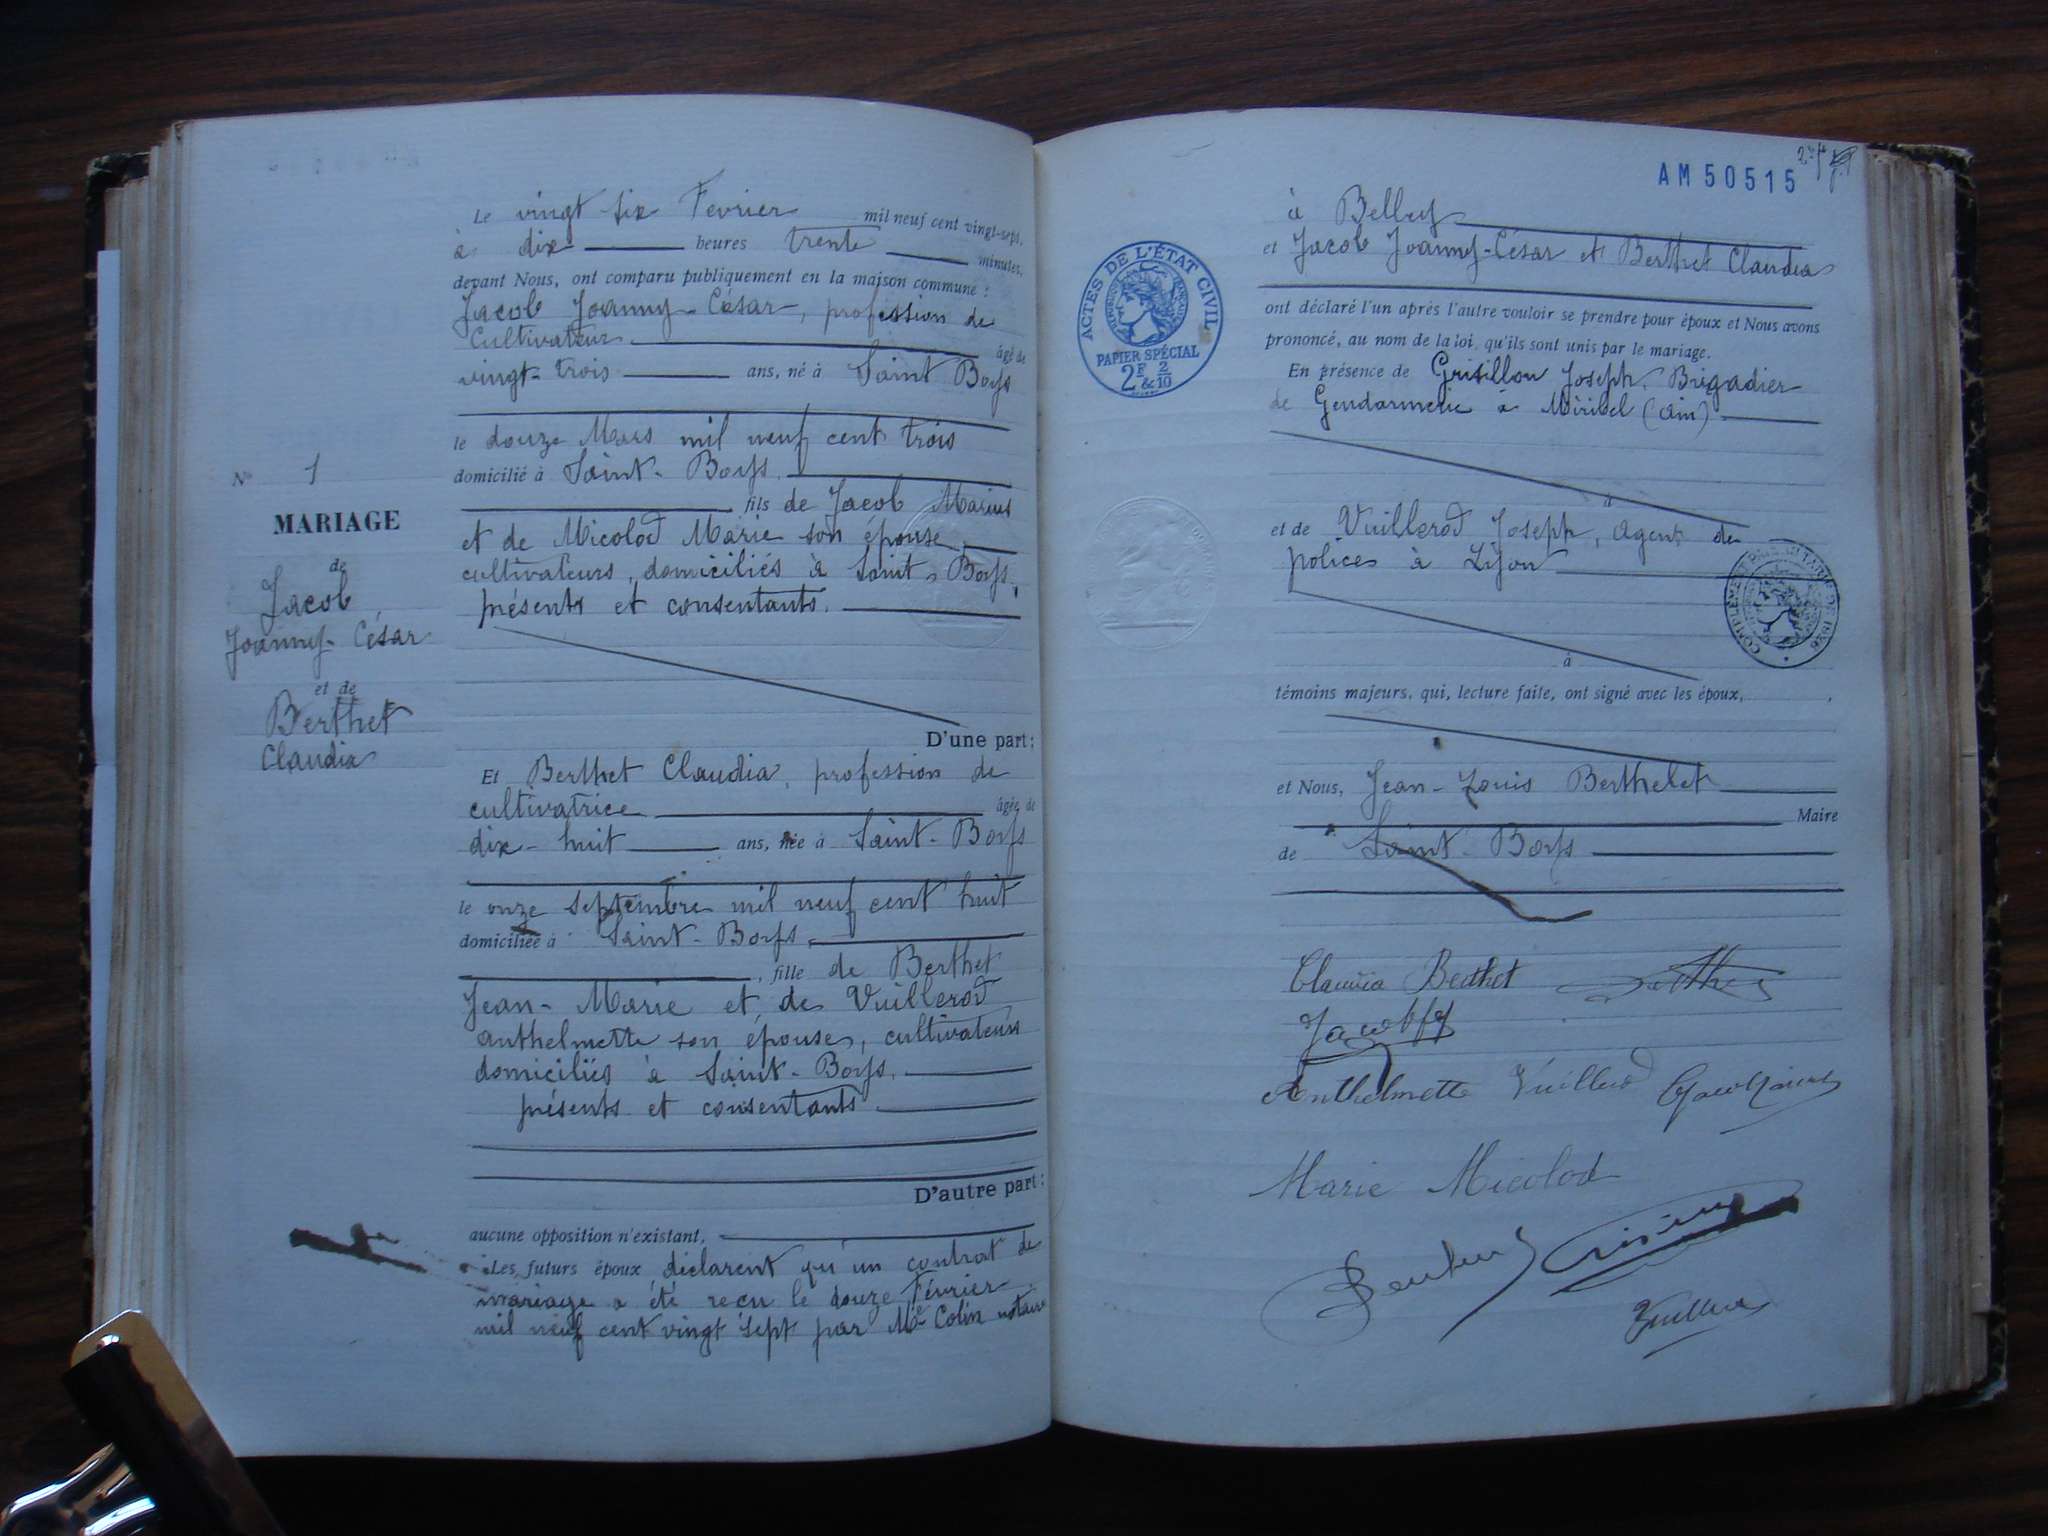 Le vingt six Fevrier mil neuf cent vingt-sept,
à dix heures trente minutes,
devant Nous, ont comparu publiquement en la maison commune :
Jacob Joanny-César, profession de
Cultivateur âgé de
vingt-trois ans, né à Saint Boys
le douze Mars mil neuf cent trois
domicilié à Saint-Boys
fils de Jacob Marius
et de Micolod Marie son épouse
cultivateurs, domiciliés à Saint-Boys,
présents et consentants.
D'une part :
Et Berthet Claudia, profession de
cultivatrice âgée de
dix-huit ans, née à Saint-Boys
le onze septembre mil neuf cent huit
domiciliée à Saint-Boys
, fille de Berthet
Jean-Marie et de Vuillerod
Anthelmette son épouse, cultivateurs
domiciliés à Saint-Boys.
présents et consentants
D'autre part :
aucune opposition n'existant,
Les futurs époux déclarent qu'un contrat de
mariage a été reçu le douze Février
mil neuf cent vingt sept par Me Colin notaire
N° 1
MARIAGE
de
Jacob
Joanny-César
et de
Berthet
Claudia
AM 50515
à Belley
et Jacob Joanny-César et Berthet Claudia
ont déclaré l'un après l'autre vouloir se prendre pour époux et Nous avons
prononcé, au nom de la loi, qu'ils sont unis par le mariage.
En présence de Grisillon Joseph, Brigadier
de Gendarmerie à Miribel (Ain)
à
et de Vuillerod Joseph, agent de
police à Lyon
à
témoins majeurs, qui, lecture faite, ont signé avec les époux,
et Nous, Jean-Louis Berthelet
Maire
de Saint-Boys
ACTES DE L'ÉTAT CIVIL
RÉPUBLIQUE FRANÇAISE
PAPIER SPÉCIAL
2F & 2/10
Claudia Berthet
Anthelmette Vuillerod
Marie Micolod